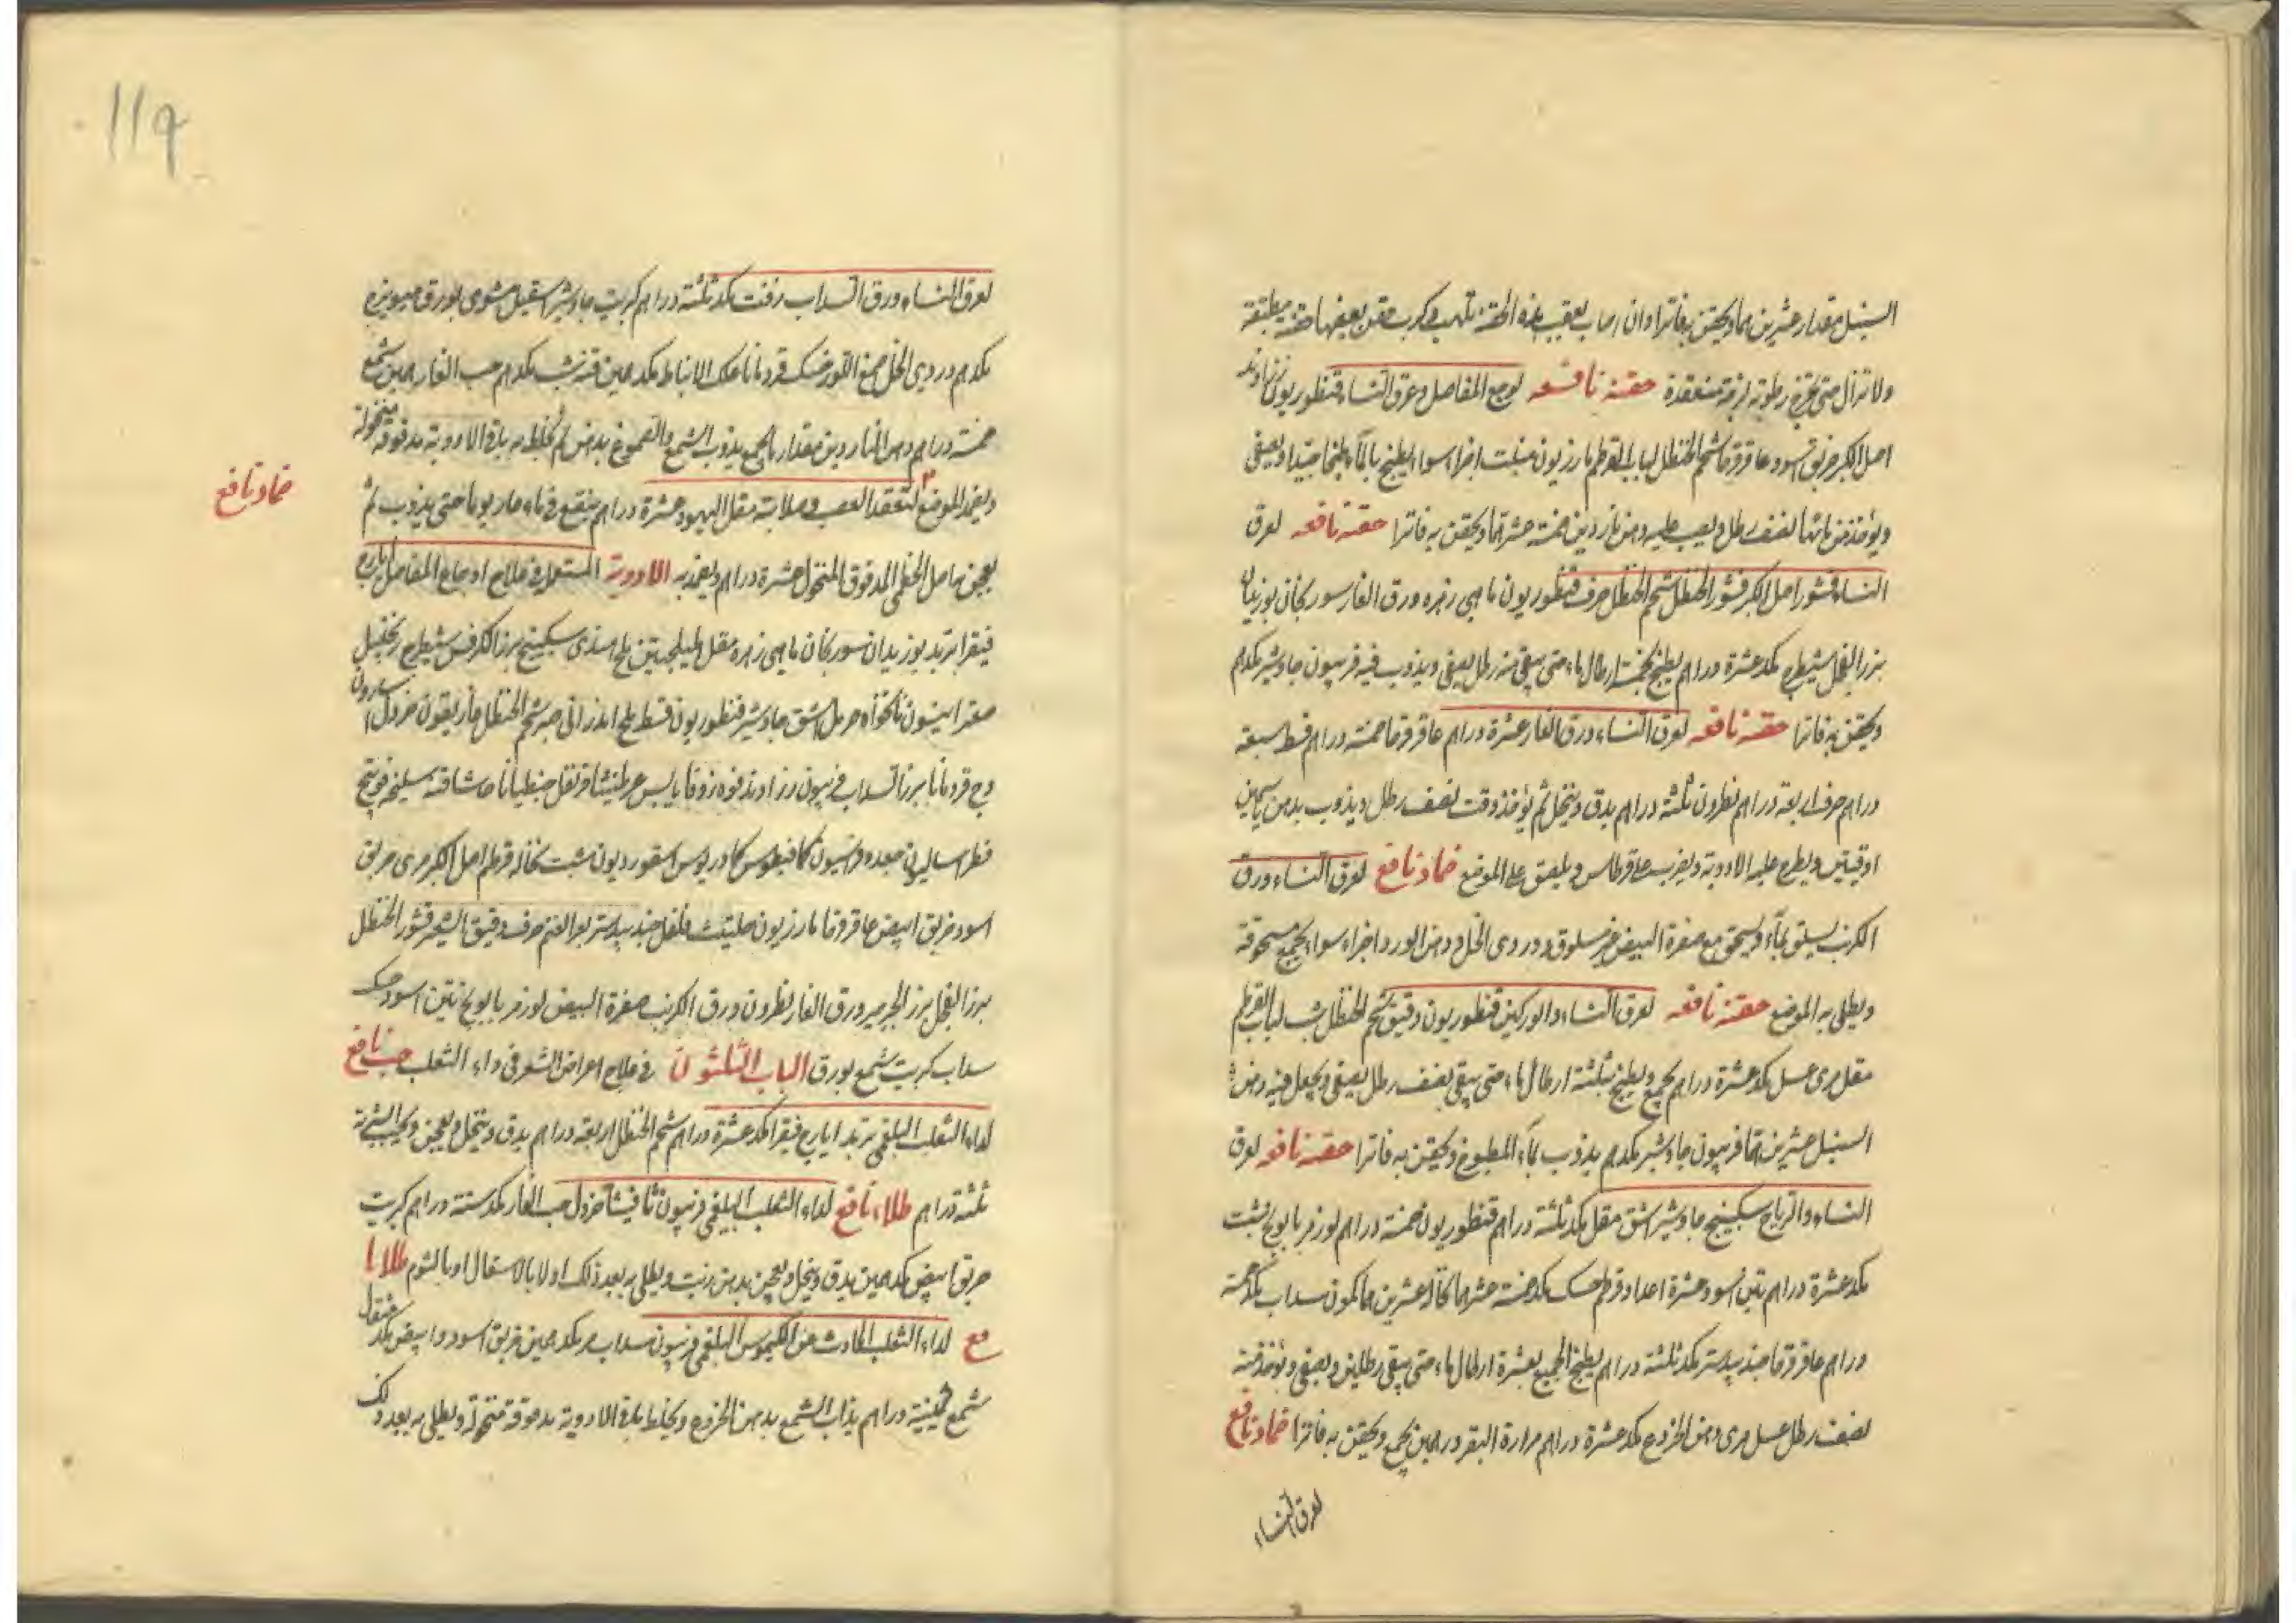 السنبل مقدار عشرين درهما ويحتقن به فاترا وان اصاب بعقب هذه الحقنة تلهب وكرب حقن بعضها حقنة
ولا تزال حتى تخرج رطوبة لزجة منعقدة حقنة نافعه لوجع المفاصل وعرق النساء قنطوريون زراوند
اصل الكبر خربق اسود عاقرقرحا شحم الحنظل لباب القرطم مازريون شبت اجزاء سواء يطبخ بالماء طبخا جيدا ويصفى
ويؤخذ من مائها نصف رطل ويصب عليه دهن ناردين خمسة عشر درهما ويحتقن به فاترا حقنة نافعه لعرق
النساء قشور اصل الكبر قشور الحنظل شحم الحنظل حرف قنطوريون ماهي زهره ورق الغار سورنجان بوزيدان
بزر الفجل شيطرج مكد عشرة دراهم يطبخ بخمسة ارطال ماء حتى يبقى منه رطل يصفى ويذوب فيه فربيون جاوشير مكدم
ويحتقن به فاترا حقنة نافعه لعرق النساء ورق الغار عشرة دراهم عاقرقرحا خمسة دراهم قسط سبعة
دراهم حرف اربعة دراهم نطرون ثلثة دراهم يدق وينخل ثم يؤخذ زفت نصف رطل ويذوب بدهن ياسمين
اوقيتين ويطرح عليه الادوية ويضرب على قرطاس ويلصق على الموضع ضماد نافع لعرق النساء ورق
الكرنب يسلق بماء ويسحق مع صفرة البيض غير مسلوق ودردى الخل ودهن الورد اجزاء سواء يجمع مسحوقة
ويطلى به الموضع حقنة نافعه لعرق النساء والوركين قنطوريون دقيق شحم الحنظل شب لباب القرطم
مقل مرى عسل مكد عشرة دراهم يجمع ويطبخ بثلثة ارطال ماء حتى يبقى نصف رطل يصفى ويجعل فيه دهن
السنبل عشرين درهما فربيون جاوشير مكدهم يذوب بماء المطبوخ ويحتقن به فاترا حقنة نافعه لعرق
النساء والرياح سكبينج جاوشير اشق مقل مكد ثلثة دراهم قنطوريون خمسة دراهم لوز مر بابونج شبت
مكد عشرة دراهم تين اسود عشرة اعداد قرطم حسك مكد خمسة عشر درهما نخالة عشرين درهما كمون سداب مكد خمسة
دراهم عاقرقرحا جندبيدستر مكد ثلثة دراهم يطبخ الجميع بعشرة ارطال ماء حتى يبقى رطلين ويصفى ويؤخذ منه
نصف رطل عسل مرى دهن الخروع مكد عشرة دراهم مرارة البقر درهمين يجمع ويحتقن به فاترا ضماد نافع
لعرق النساء
119
لعرق النساء ورق السداب زفت مكد ثلثة دراهم كبريت جاوشير اسقيل مشوى بورق ميويزج
مكدهم دردى الخل صمغ اللوز حسك قردمانا علك الانباط مكد درهمين قنه شب مكدهم حب الغار درهمين شمع
خمسة دراهم دهن الناردين مقدار ما يجمع يذوب الشمع والصموغ بدهن ثم يخلط به باقى الادوية مدقوقة منخولة
ويضمد الموضع لتعقد العصب وصلابته مقل اليهود عشرة دراهم ينقع فى ماء حار يوما حتى يذوب ثم
ضماد نافع
يعجن باصل الخطمى المدقوق المنخول عشرة دراهم ويضمد به الادوية المستعملة فى علاج اوجاع المفاصل ايارج
فيقرا تربد بوزيدان سورنجان ماهى زهره مقل هليلجتين ملح هندى سكبينج بزر الكرفس شيطرج زنجبيل
صعتر انيسون نانخواه حرمل اشق جاوشير قنطوريون قسط ملح اندرانى صبر شحم الحنظل غاريقون خردل اسارون
وج قردمانا بزر السداب فربيون زراوند فوه زوفا يابس عرطنيثا قرنفل جنطيانا حاشا قنه سليخه فوتنج
فطراساليون جعده فراسيون كمافيطوس كمادريوس اسقورديون شبت نخاله قرطم اصل الكبر مرى خربق
اسود خربق ابيض عاقرقرحا مازريون حلتيت فلفل جندبيدستر بعر الغنم حرف دقيق الشعير قشور الحنظل
بزر الفجل بزر الجرجير ورق الغار نطرون ورق الكرنب صفرة البيض لوز مر بابونج تين اسود حسك
سداب كبريت شمع بورق الباب الثلثون فى علاج امراض الشعر فى داء الثعلب حب نافع
لداء الثعلب البلغمى تربد ايارج فيقرا مكد عشرة دراهم شحم الحنظل اربعة دراهم يدق وينخل ويعجن ويحبب الشربة
ثلثة دراهم طلاء نافع لداء الثعلب البلغمى فربيون ثافيسيا خردل حب الغار مكد ستة دراهم كبريت
خربق ابيض مكد درهمين يدق وينخل ويعجن بدهن زيت ويطلى به بعد ذلك اولا بالاسقال او بالثوم طلا نا
فع لداء الثعلب الحادث عن الكيموس البلغمى فربيون سداب بر مكد درهمين خربق اسود وابيض مكد مثقال
شمع ثمينية دراهم يذاب الشمع بدهن الخروع ويخلط باقى الادوية مدقوقة منخولة ويطلى به بعد دلك